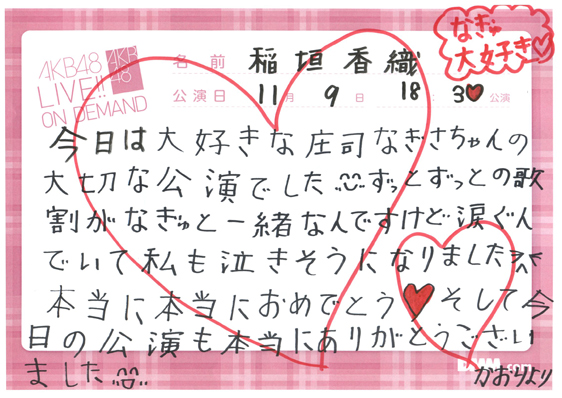 なぎゅ
大好き♡
AKB48
LIVE!!
ON DEMAND
AKB
48
名 前 稲垣香織
公演日 11月 9日 18:30公演
今日は大好きな庄司なぎさちゃんの
大切な公演でした ずっとずっとの歌
割がなぎゅと一緒なんですけど涙ぐん
でいて私も泣きそうになりました
本当に本当におめでとう♥そして今
日の公演も本当にありがとうござい
ました
.com
かおりより